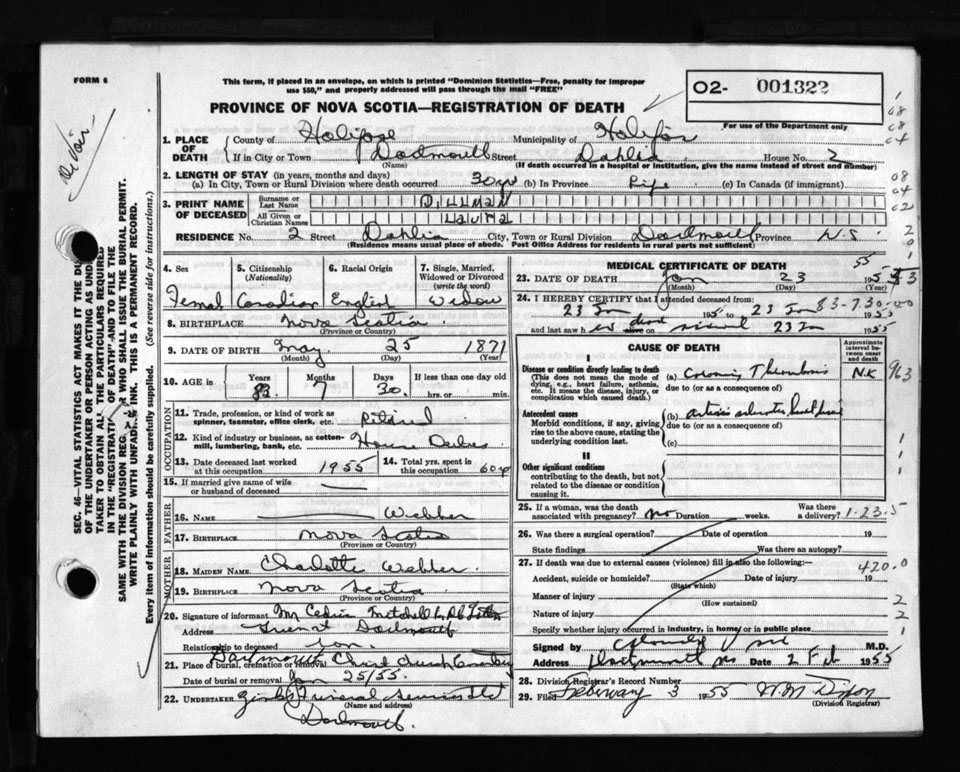 FORM 6
This form, if placed in an envelope, on which is printed "Dominion Statistics—Free, penalty for improper
use $50," and properly addressed will pass through the mail "FREE"
PROVINCE OF NOVA SCOTIA—REGISTRATION OF DEATH
02- 001322
For use of the Department only
1. PLACE OF DEATH County of Halifax Municipality of Halifax
If in City or Town Dartmouth Street Dahlia House No. 2
(Name) (If death occurred in a hospital or institution, give the name instead of street and number)
2. LENGTH OF STAY (in years, months and days)
(a) In City, Town or Rural Division where death occurred 30 yr (b) In Province Life (c) In Canada (if immigrant)
3. PRINT NAME OF DECEASED Surname or Last Name DILLMAN
All Given or Christian Names Laura
RESIDENCE No. 2 Street Dahlia City, Town or Rural Division Dartmouth Province N.S.
(Residence means usual place of abode. Post Office Address for residents in rural parts not sufficient)
4. Sex 5. Citizenship (Nationality) 6. Racial Origin 7. Single, Married, Widowed or Divorced (write the word)
Femal Canadian English Widow
8. BIRTHPLACE Nova Scotia
(Province or Country)
9. DATE OF BIRTH May 25 1871
(Month) (Day) (Year)
10. AGE in Years Months Days If less than one day old
7 30 hrs. or min.
OCCUPATION
11. Trade, profession, or kind of work as spinner, teamster, office clerk, etc. Retired
12. Kind of industry or business, as cotton-mill, lumbering, bank, etc. House Duties
13. Date deceased last worked at this occupation 1955 14. Total yrs. spent in this occupation 60 yr
15. If married give name of wife or husband of deceased
FATHER
16. NAME Webber
17. BIRTHPLACE Nova Scotia
(Province or Country)
MOTHER
18. MAIDEN NAME Charlotte Webber
19. BIRTHPLACE Nova Scotia
(Province or Country)
20. Signature of informant Mitchell
Address Dartmouth
Relationship to deceased Son
21. Place of burial, cremation or removal Dartmouth Christ Church Cemetery
Date of burial or removal Jan 25/55.
22. UNDERTAKER Funeral Service Ltd
(Name and address)
Dartmouth.
MEDICAL CERTIFICATE OF DEATH
23. DATE OF DEATH Jan 23 195
(Month) (Day) (Year)
24. I HEREBY CERTIFY that I attended deceased from
23 Jan 1955 to 23 Jan 1955
and last saw her dead alive on 23 Jan 1955
83-7.30-00
CAUSE OF DEATH
Approximate interval between onset and death
I
Disease or condition directly leading to death
(This does not mean the mode of dying, e.g., heart failure, asthenia, etc. It means the disease, injury, or complication which caused death.)
(a) Coronary Thrombosis N.K 963
due to (or as a consequence of)
Antecedent causes
Morbid conditions, if any, giving rise to the above cause, stating the underlying condition last.
(b)
due to (or as a consequence of)
(c)
II
Other significant conditions
contributing to the death, but not related to the disease or condition causing it.
25. If a woman, was the death associated with pregnancy? No Duration weeks. Was there a delivery? 1-23-5
26. Was there a surgical operation? Date of operation 19
State findings Was there an autopsy?
27. If death was due to external causes (violence) fill in also the following:—
420.0
Accident, suicide or homicide? Date of injury 19
(State which)
Manner of injury
(How sustained)
Nature of injury
Specify whether injury occurred in industry, in home, or in public place
Signed by M.D.
Address Dartmouth NS Date 2 Feb 1955
28. Division Registrar's Record Number
29. Filed February 3 1955 W.M. Dixon
(Division Registrar)
SEC. 46—VITAL STATISTICS ACT MAKES IT THE DU
OF THE UNDERTAKER OR PERSON ACTING AS UNDER
TAKER TO OBTAIN ALL THE PARTICULARS REQUIRED
IN THE "REGISTRATION OF DEATH" AND TO FILE THE
SAME WITH THE DIVISION REG WHO SHALL ISSUE THE BURIAL PERMIT.
WRITE PLAINLY WITH UNFADING INK. THIS IS A PERMANENT RECORD.
Every item of information should be carefully supplied. (See reverse side for instructions.)